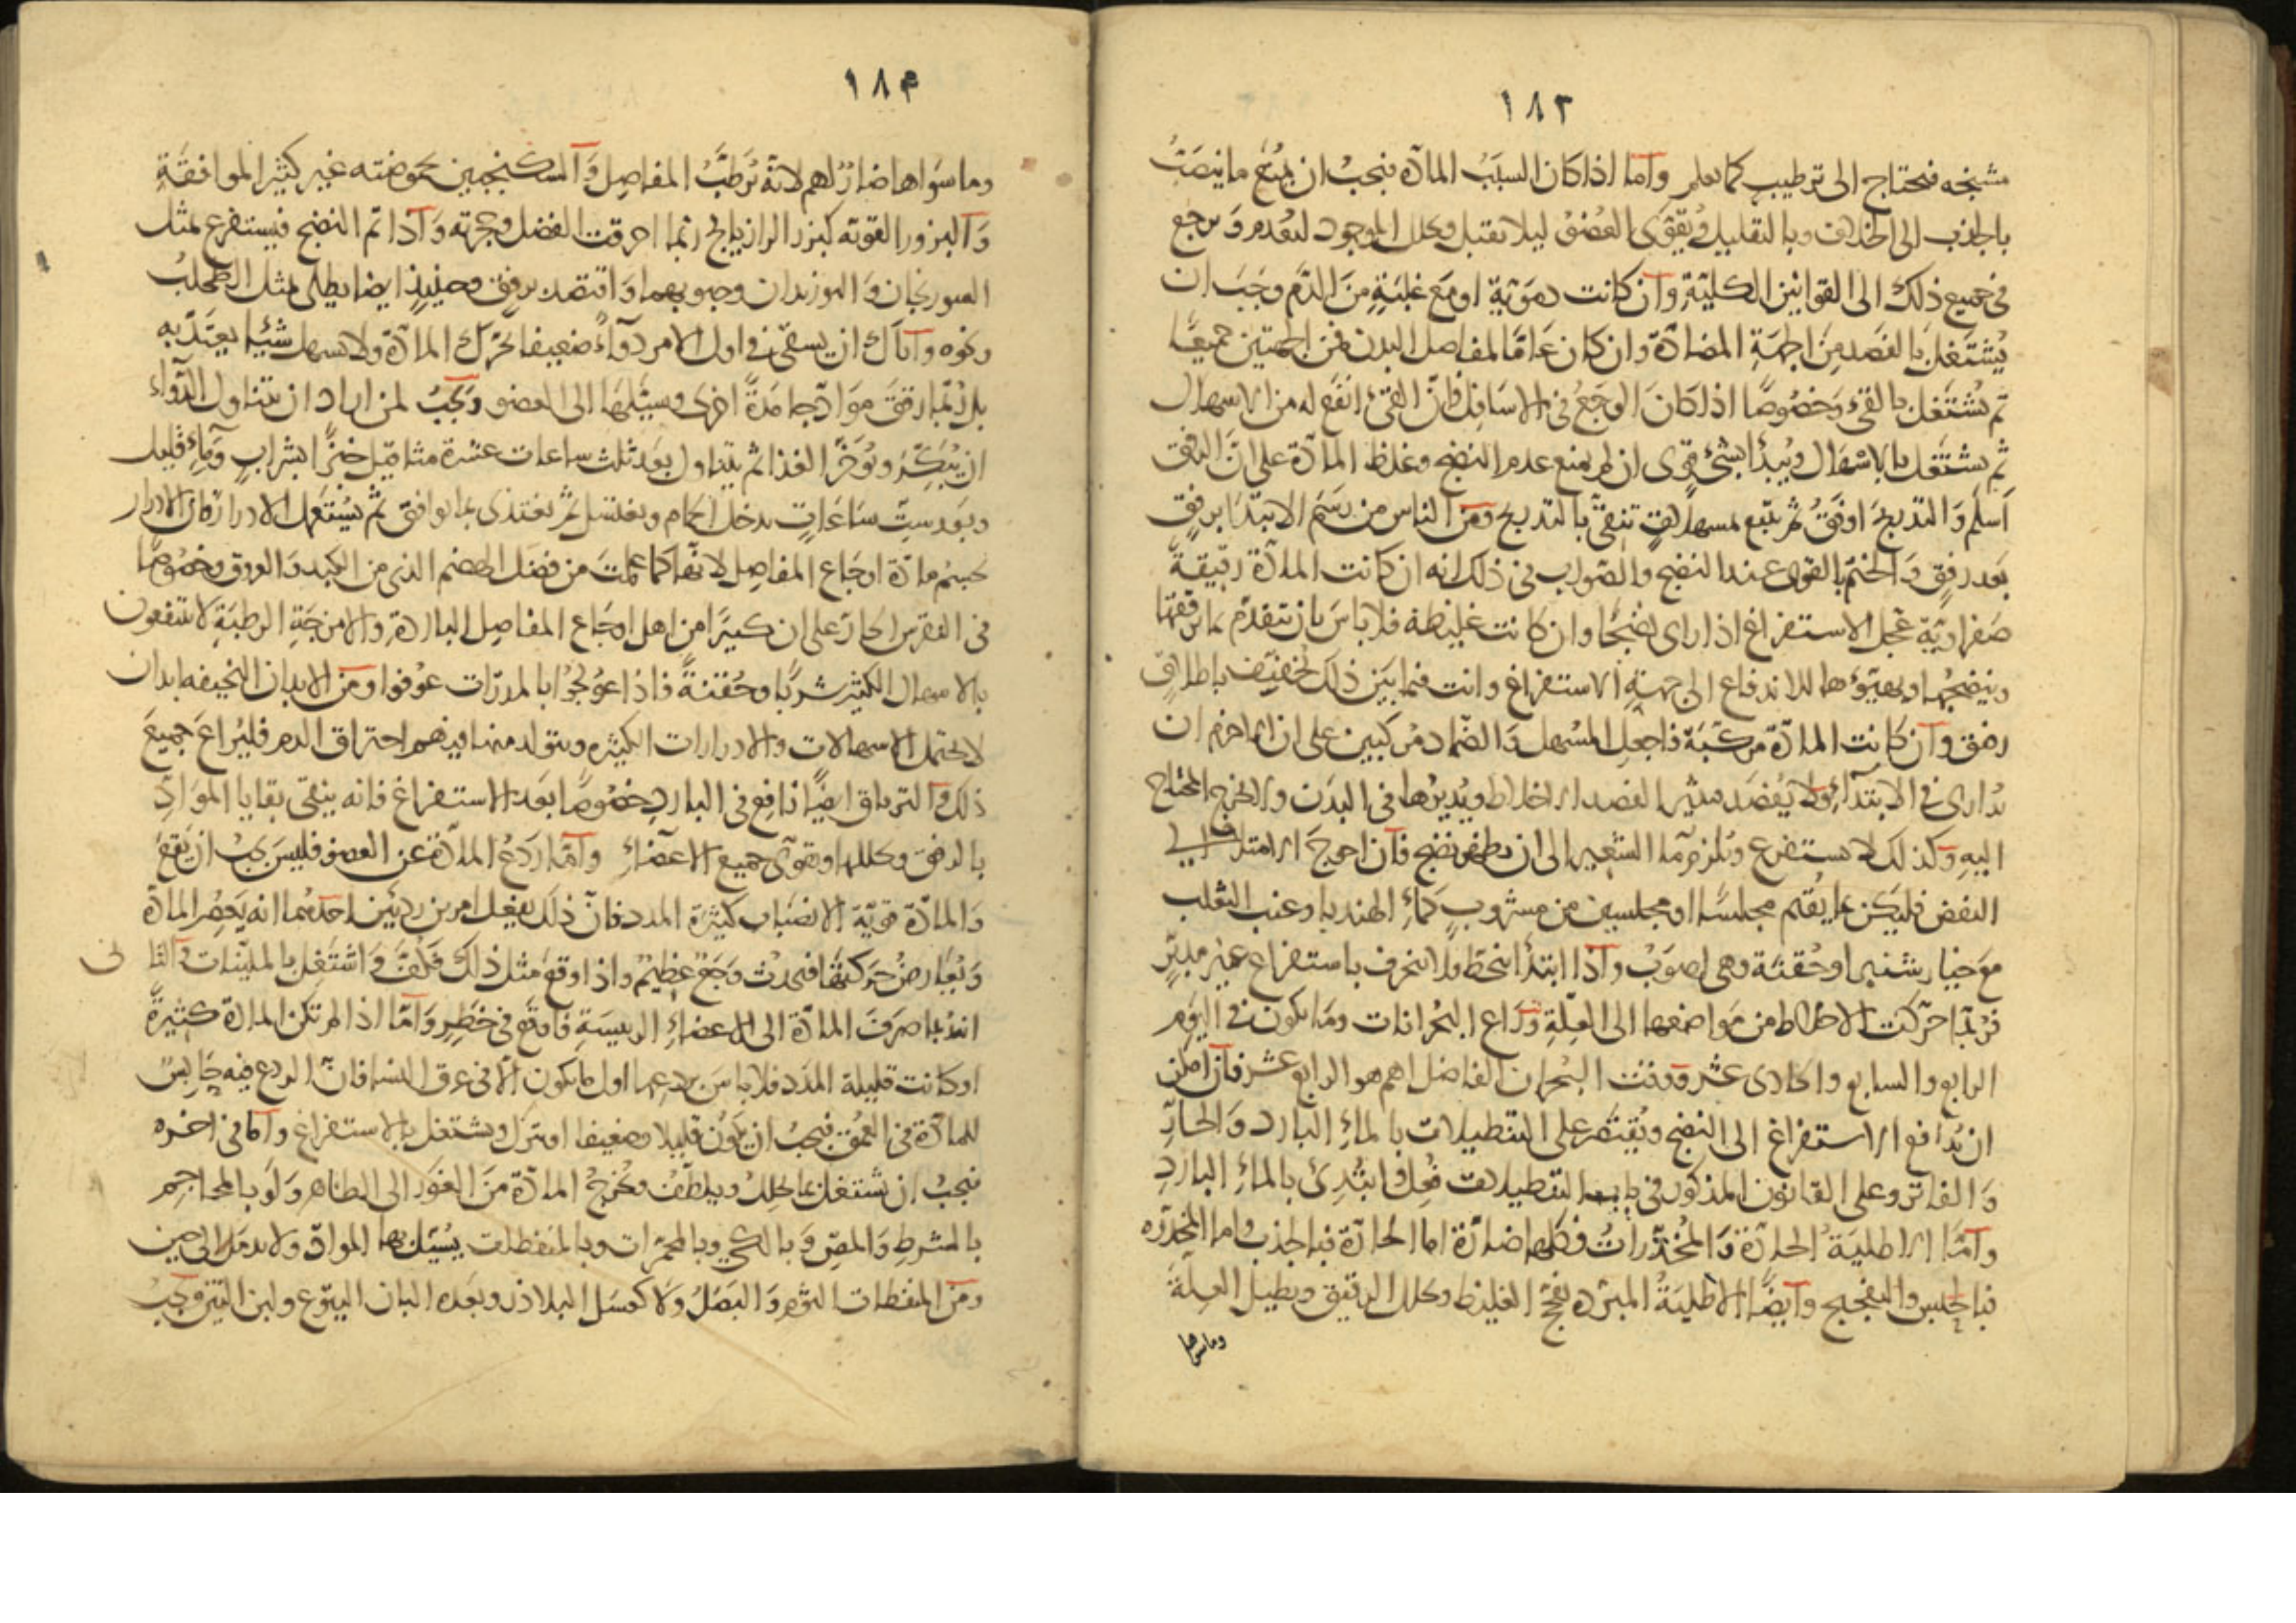 ١٨٢
مشنجه فيحتاج الى ترطيب كما يعلم وآما اذا كان السبب المادّه فيجب ان يمنع ما ينصبّ
بالجذب الى الخلاف وبالتقليل ويُقوّى العُضوُ ليلا يقبل ويحلل الموجود ليعدم وَيرجع
فى جميع ذلك الى القوانين الكليّةِ وآن كانت دمويّة او مع غلبَةٍ من الدّم وجَبَ ان
يُشتغل بالفصد من الجهةِ المضادّة وان كان عَامًا لمفاصل البدن فمن الجهتين جميعًا
ثم يُشتغل بالقىء وَخصُوصًا اذا كانَ الوجَعُ فى الاسَافِل فانّ القىءَ انفع له من الاسهال
ثم يشتغل بالاسهال ويُبدأ بشىءٍ قوى ان لم يمنع عدم النضج وغلظ المادّة على انّ الرفق
اَسلم وَالتدريجَ اوفقُ ثم يتبع بمسهلات تنقى بالتدريج ومن الناس من رسَم الابتدَا برفقٍ
بعد رفقٍ وَالختمَ بالقوى عند النضج والصّواب فى ذلك انه ان كانت المادّة رقيقةً
صَفراويّة عجل الاستفراغ اذا راى نضجًا وان كانت غليظة فلا باسَ بان يتقدّم بما يرققها
وينضجُها ويهيّؤها للاندفاع الى جهةِ الاستفراغ وانت فيما بَين ذلك تخفيف باطلاقٍ
رفق وآن كانت المادّة مركبَة فاجعلِ المُسهل وَالضّماد مُركبين على ان الحزم ان
يُدارى فى الابتدآءِ ولا يُفصَد فيثير الفصد الاخلاط ويُديرُها فى البدَن ولا يخرج المحتاج
اليهِ وكذلك لا يستفرغ ويُلزم مآء الشعير الى ان يظهر نضج فآن احوجَ الامتلاء الى
النفض فليكن بما يُقيم مجلسًا او مجلسين من مشروبٍ كماءِ الهندبا وعنب الثعلب
مَع خيار شنبر او حُقنَة وهى اصوَبُ وآذا ابتدأ ينحطّ فلا ينحرف باستفراغ غير مدبّرٍ
فرُبّما حركت الاخلاط من مَواضعها الى العِلّةِ وَرَاعِ البُحرانات وما يكون فى اليَوم
الرابع والسابع والحادى عشر ووقت البُحران الفاضل لهم هو الرابع عشر فآن امكن
ان يُدافع الاستفراغ الى النضج ويُقتصَر على التنطيلات بالماءِ البارد وَالحارّ
وَالفاتر وعلى القانون المذكور فى باب التنطيلات فعل وابتُدِئ بالماءِ الباردِ
وآمّا الاطليَةُ الحارّة وَالمُخدّراتُ فكلها ضارّة اما الحارّة فبالجذب واما المخدّره
فبالحبس والتفجيج وآيضًا الاطليَةُ المبرّده تفجّ الغليظ ويحلل الرقيق ويطيل العِلّةَ
وما سواها
١٨٣
وما سوَاها ضارّ لهم لانّهُ تُرطبُ المفاصِل وَآلسكنجبين بحموضته غير كثير الموافقةِ
وَآلبزور القويّه كبزر الرازيانج ربّما احرقت الفضل وحجرته وَآذا تم النضج فيستفرغ بمثل
السورنجان وَالبوزيدان وحبوبهما وَاقتصد برفقٍ وحينئذٍ ايضا يطلى بمثل الطحلب
ونحوه وآيّاك ان يسقى فى اول الامر دوآءً ضعيفا يُحرّك المادّة ولا يسهل شيئا يعتدّ به
بل رُبّما رققَ موَادّ جامدَةً اُخرى وسيّلَها الى العضو وَيجبُ لمن اراد ان يتناول الدّواء
ان يُبكّرَ ويُؤخّرَ الغذا ثم يتناول بعد ثلث ساعات عشرة مثاقيل خبزًا بشرابٍ وَماءٍ قليل
وبَعد سِتِ ساعَاتٍ يدخل الحمام ويغتسل ثم يغتذى بما يوافق ثم يُستعمل الادرار فان الادرار
يحسم مادّة اوجَاع المفاصِل لانّها كما علمتَ من فضل الهضم الذى من الكبد وَالعروق وخصُوصًا
فى النقرس الحارّ على ان كثيرًا من اهل اوجَاع المفاصِل الباردةِ والامزجَةِ الرطبَةِ لا ينتفعون
بالاسهال الكثير شربًا وحُقنةً فاذا عُولجُوا بالمدرّات عُوفوا ومن الابدان النحيفه ابدان
لا تحتمل الاسهالات والادرارات الكثيره ويتولد منها فيهم احتراق الدم فليُراعَ جميعَ
ذلك وآلترياق ايضًا نافِع فى الباردِ خصُوصًا بعد الاستفراغ فانه ينقى بقايا الموَادّ
بالرفق ويحللها ويقوّى جميع الاعضاءِ وآمّا ردعُ المادّة عن العضو فليسَ يجبُ ان يقعَ
وَالمادّة قويّة الانصَباب كثيرَة المدد فانّ ذلك يفعل امرين رديئين احدهُما انه يَحصُر المادّة
وَيُعَارضُ حَركتَها فيحدث وَجَعٌ عظيمٌ واذا وقع مثل ذلك فكُفَّ وَاشتَغل بالمليّنات والثانى
انه ربما صرَفَ المادّة الى الاعضاءِ الرئيسَةِ فاوقع فى خطرٍ وَآمّا اذا لم تكن المادّة كثيرةً
او كانت قليلة المدَد فلا باسَ بردعِها اول ما يكون الّا فى عرق النسا فانّ الردع فيه حَابِسٌ
للمادّة فى العُمق فيجبُ ان يكون قليلا وضعيفا او يترك ويشتغل بالاستفراغ وآمّا فى اخره
فيجبُ ان يشتغل بما يحلل ويلطّف ويُخرجُ المادّة منَ الغَور الى الظاهر وَلَو بالمحاجم
بالشرطِ وَالمصّ وَبالكىّ وبالمحمّرات وبالمنفطات يُسيّل بها الموادّ ولا يدمَل الى حين
ومن المنفطات الثُوم وَالبَصَلُ ولا كعسل البلاذر وبعده البان اليتّوع ولبن التين ويجبُ